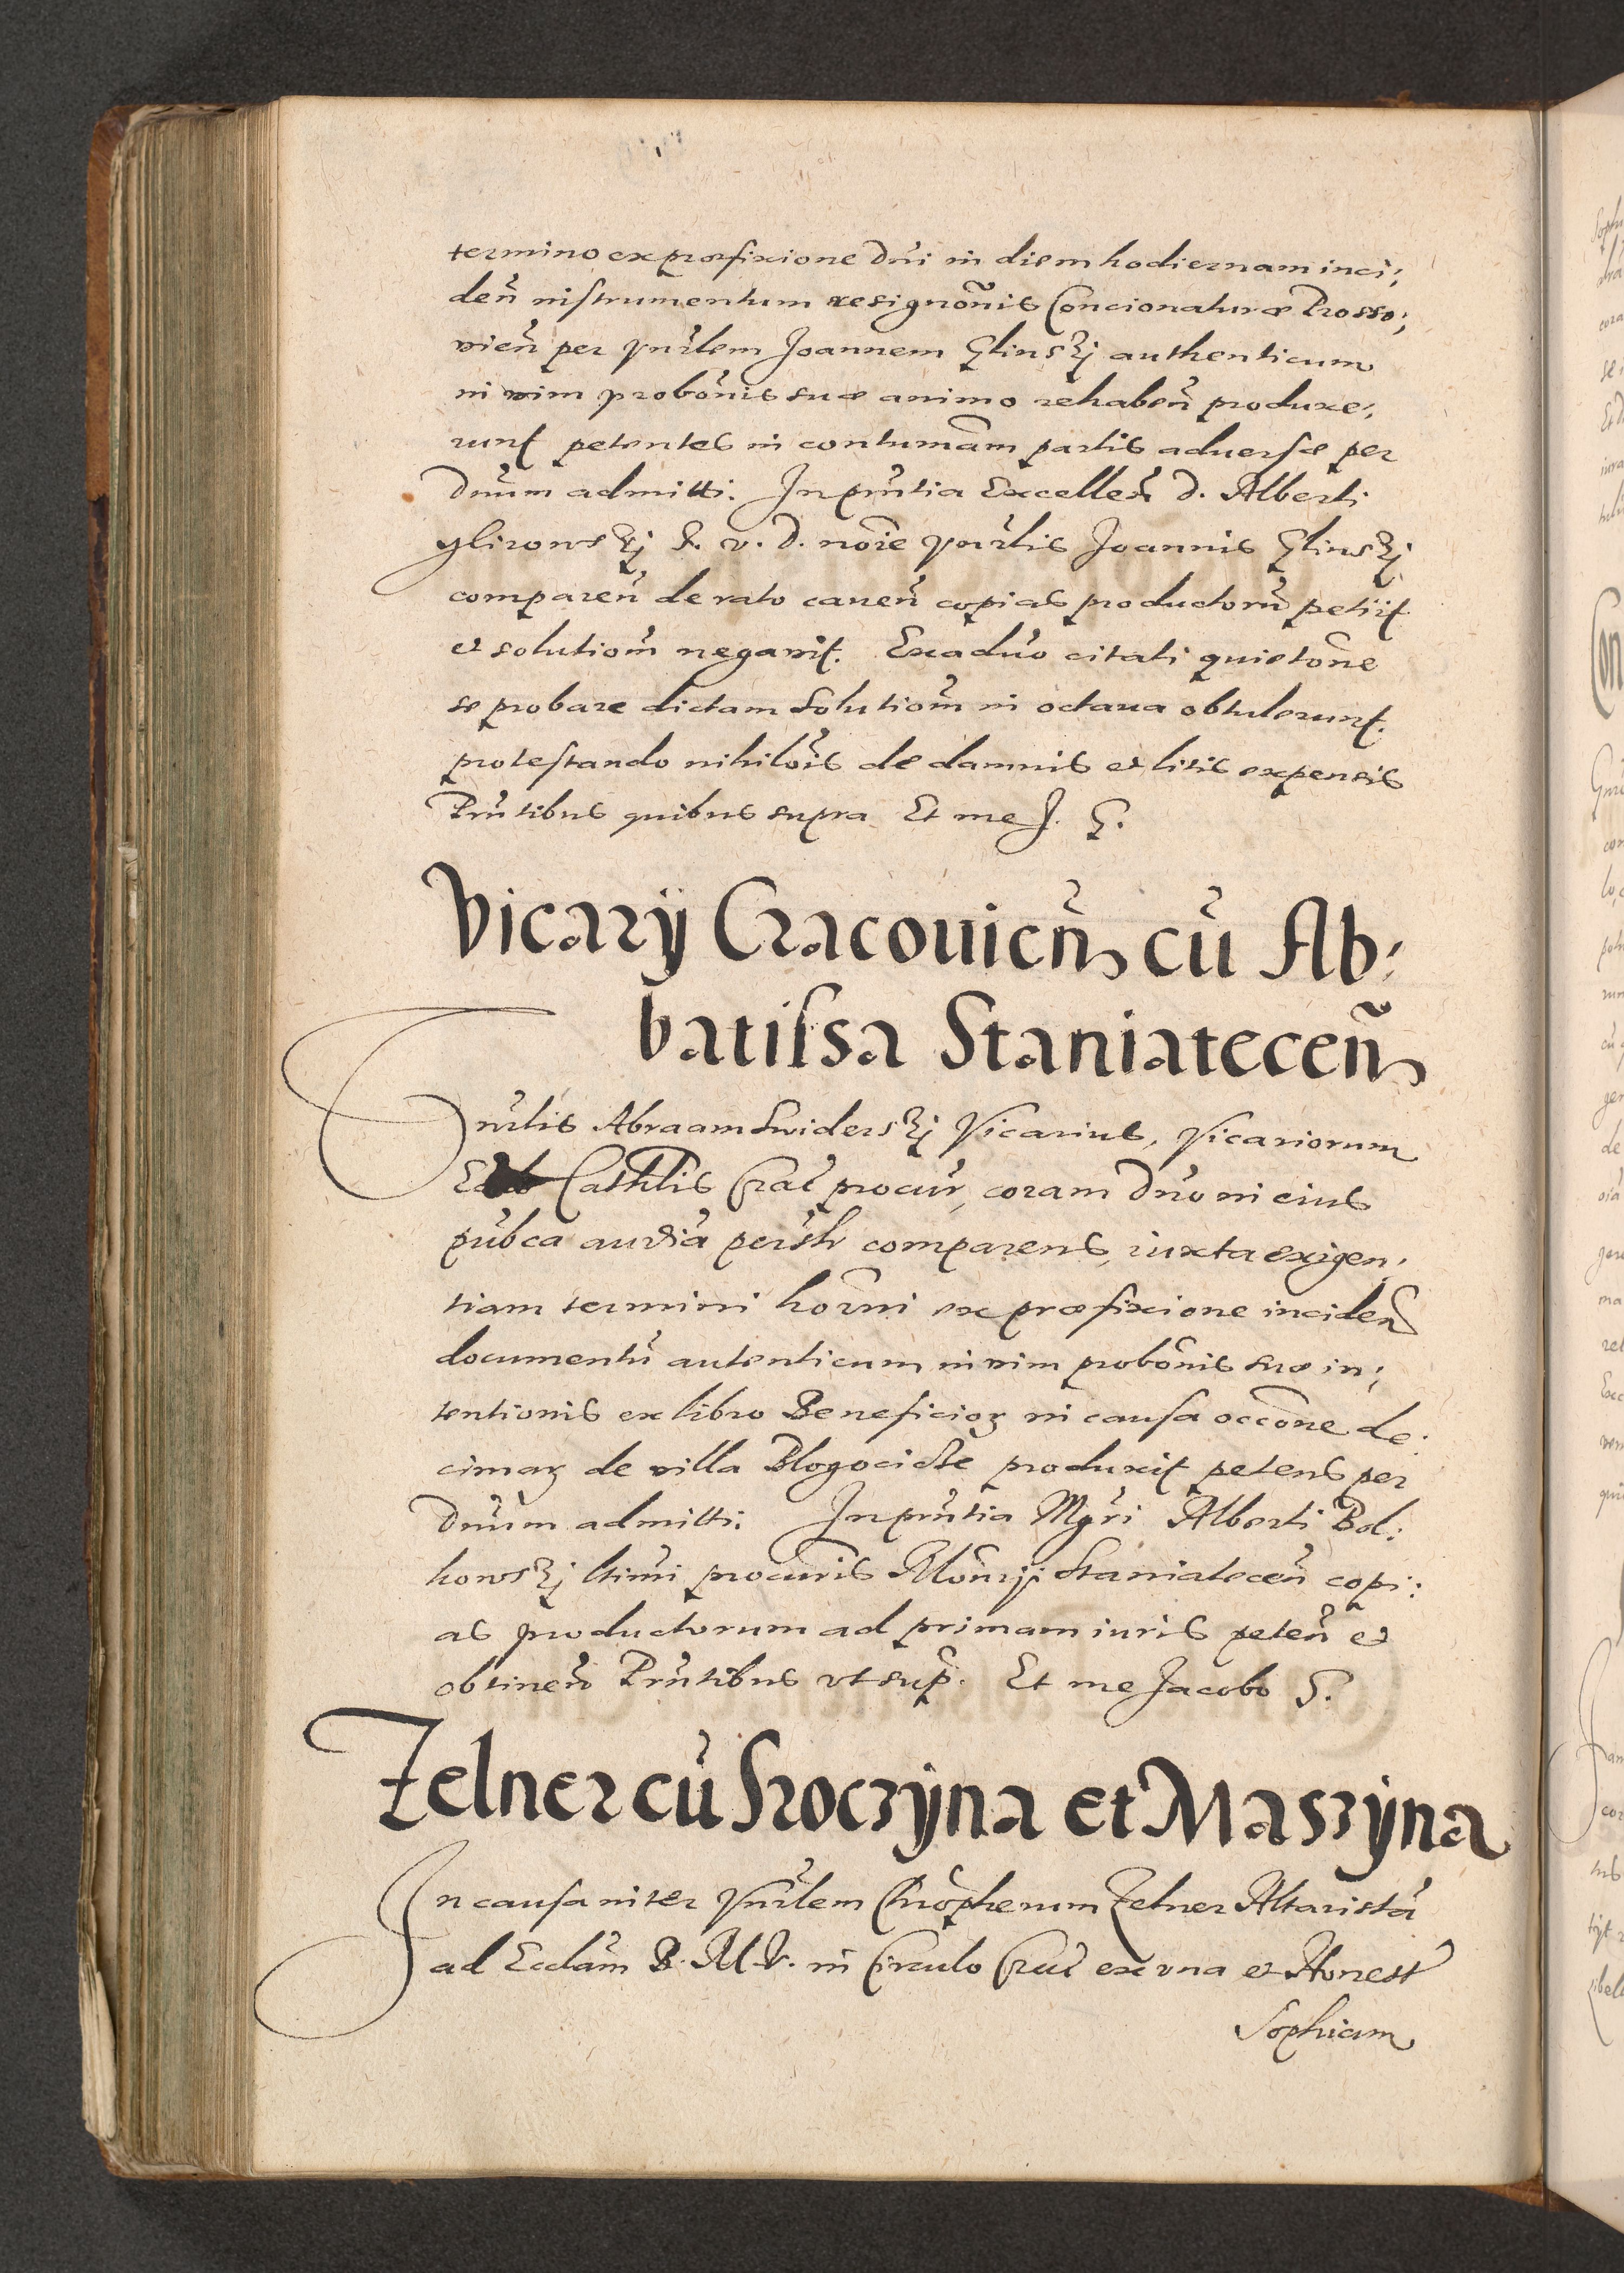 termino ex præfixione Dni in diem hodiernam inci;
den̄ instrumentum resignōnis Concionaturæ Prosso;
vicen̄ per Vnrlem Joannem Glinskj authenticum
in vim probōnis suæ animo rehaben̄ produxe;
runt petentes in contumām partis aduersæ per
Dnum admitti. In pnītia Excellen̄ D. Alberti
Glirowskj I. v. D. noīe Vnrlis Joannis Glinskj
comparen̄ de rato caven̄ copias productorū petiit
et solutiom̄ negavit. Ex aduo citati quietōne
se probare dictam solutiom̄ in octava obtulerunt.
protestando nihilōis de damnis et litis expensis
Pnītibus quibus supra Et me J. G.
Vicarÿ Cracovicen̄ cū Ab:
batissa Staniatecen̄
Vnrlis Abraam Swiderskj Vicarius, Vicariorum
Cathlis Crac̄ procur̄, coram Dno in eius
pubca audīa persl̄r comparens, iuxta exigen,
tiam termini horni ex præfixione inciden̄
documentū autenticum in vim probōnis suæ in;
tentionis ex libro Beneficiorꝝ in causa occōne de:
cimarꝝ de villa Blogocicze produxit petens per
Dnum admitti. In pnītia Mgri Alberti Bol:
howskj ltimi procuris Monrÿ Staniatecen̄ copi:
as productorum ad primam iuris peten̄ et
obtinen̄ Pnītibus vt sup̄. Et me Jacobo G.
Zelner cū Sroczÿna et Maszÿna
In causa inter Vnrlem Chrōpherum Zelner Altaristā
ad Eccl̄am B. M. V. in Circulo Crac̄ ex vna et Honest̄
Sophiam